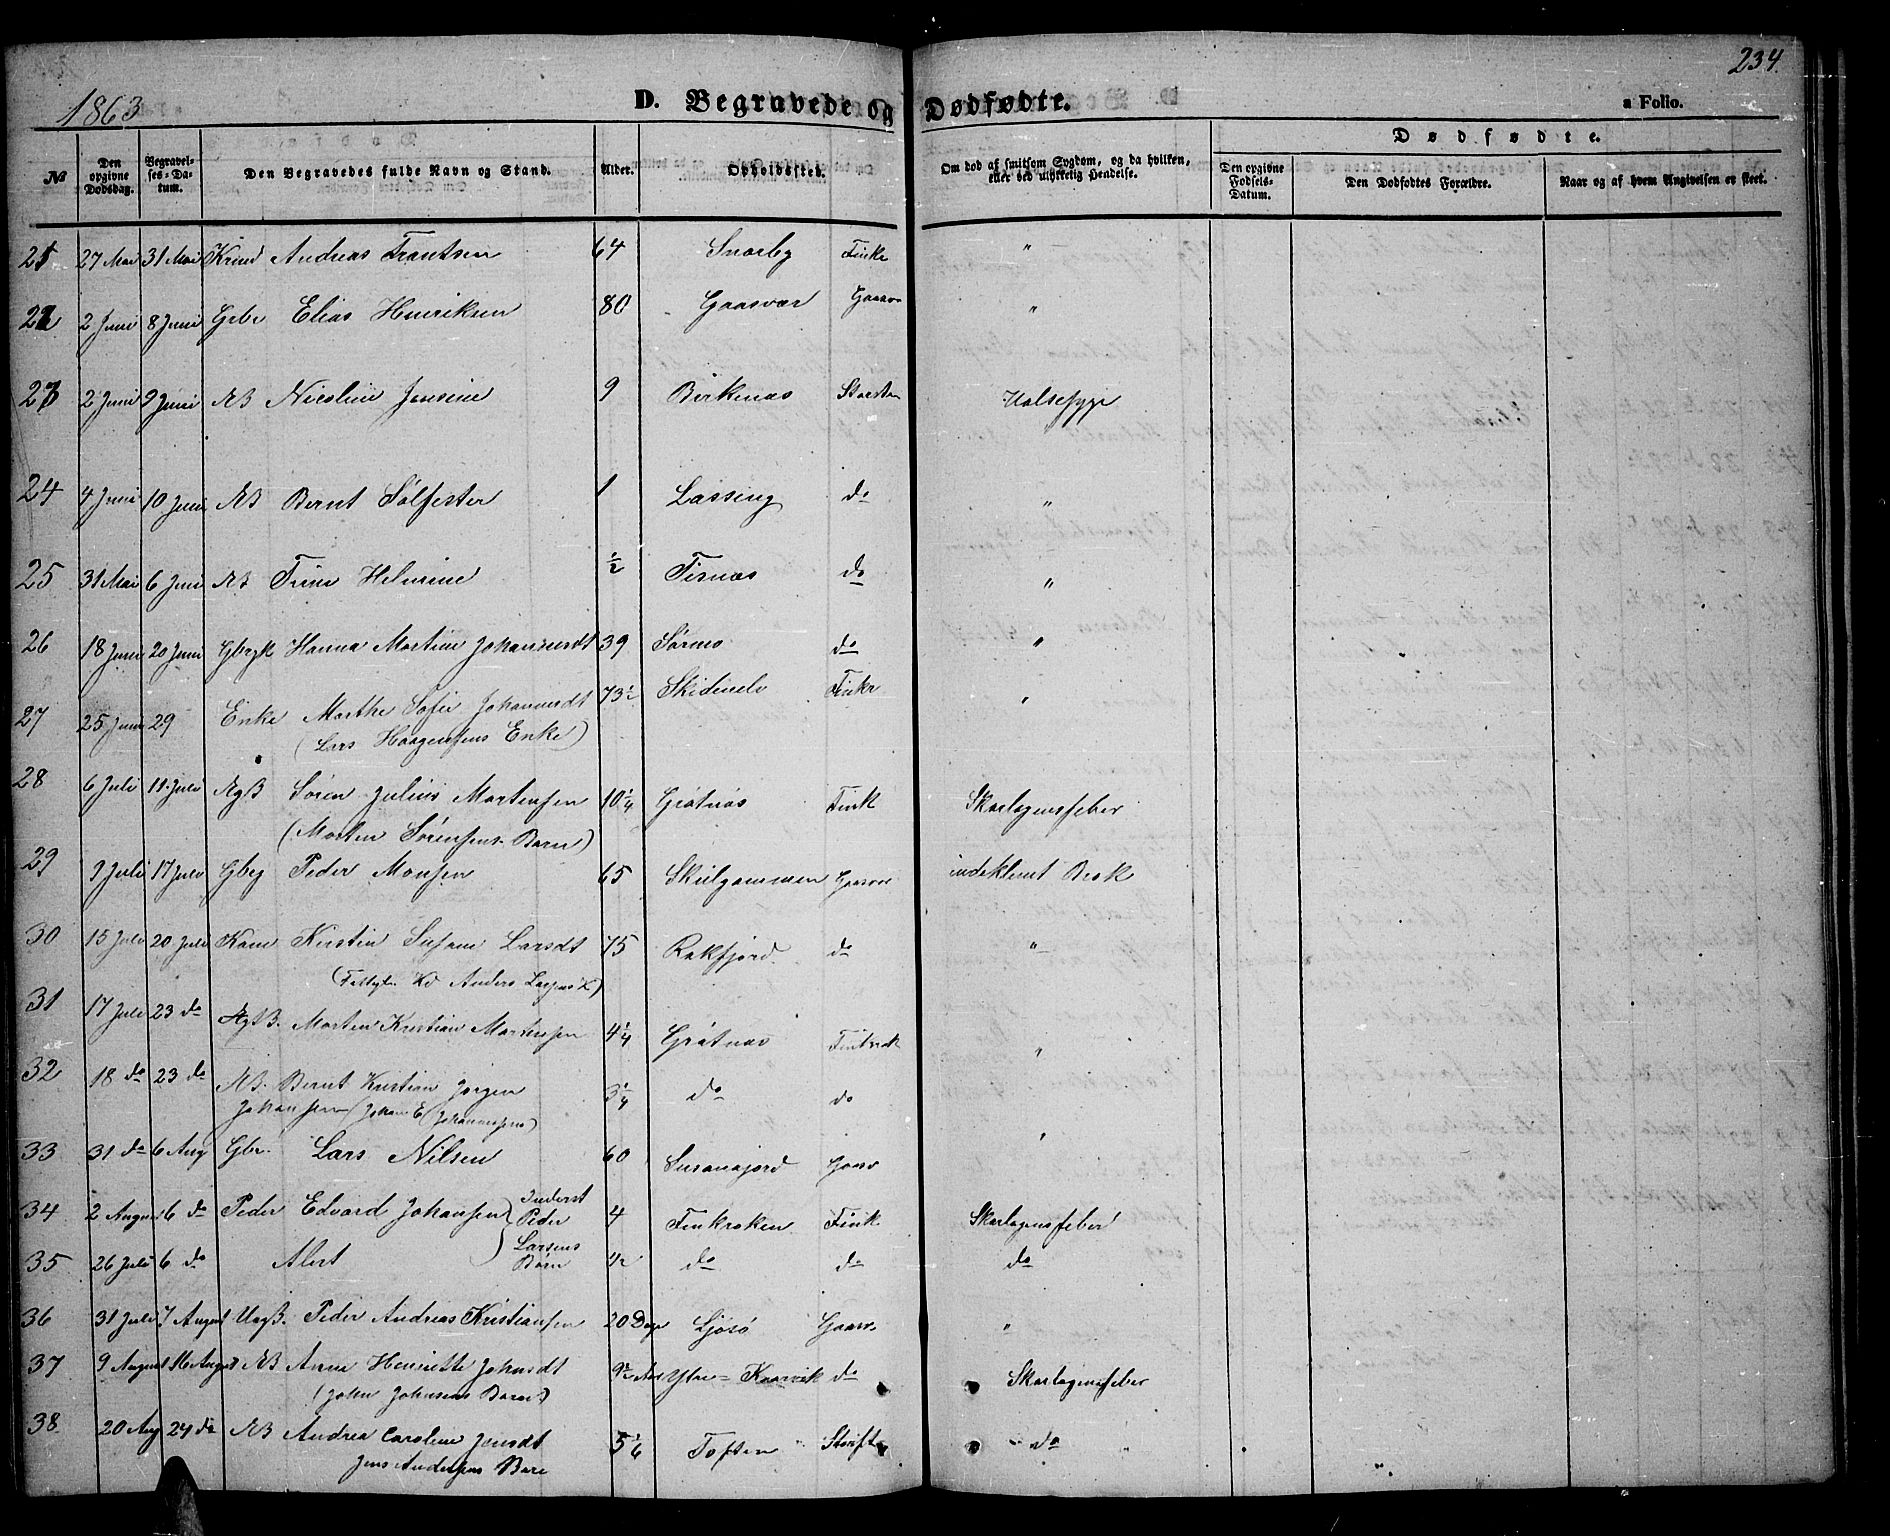 234
1863
D. Begravede og Dødfødte.
a Folio.
Dødfødte.
No
Den opgivne Dødsdag.
Begravelses-Datum.
Den Begravedes fulde Navn og Stand.
Alder.
Opholdssted.
Om død af smitsom Sygdom, og da hvilken, eller ved ulykkelig Hendelse.
Den opgivne Fødsels-Datum.
Den Dødfødtes Forældre.
Naar og af hvem Angivelsen er skeet.
21 27 Mai 31 Mai Andreas Frantsen 64 Snarby Finkr "
22 2 Juni 8 Juni Gbr Elias Henriksen 80 Gaasvær Gaasv "
23 2 Juni 9 Juni ÆB Nicoline Jensine 9 Birkenæs Storsten Halsesyge
24 4 Juni 10 Juni ÆB Bernt Sølfester 1 Lassing do "
25 31 Mai 6 Juni ÆB Trine Helmine ½ Tisnæs do "
26 18 Juni 20 Juni Gbrgk Hanna Martine Johannesdt 39 Sørmo do "
27 25 Juni 29 Enke Marthe Sofie Johannesdt 73½ Skidenelv Finkr "
(Lars Haagensens Enke)
28 6 Juli 11 Juli ÆgB Søren Julius Martensen 10¼ Grøtnæs Fink Skarlagensfeber
(Morten Sørensens Barn)
29 9 Juli 17 Juli Gbrg Peder Monsen 65 Skulgammen Gaasv indeklemt Brok
30 15 Juli 20 Juli Kone Kirstin Susane Larsdt 75 Rakfjord do "
31 17 Juli 23 do ÆgtB. Morten Kristian Martensen 4¼ Grøtnæs Finkrok "
32 18 do 23 do ÆB. Bernt Kristian Jørgen 3¼ do do
Johansen (Johan E Johannesens)
33 31 do 6 Aug Gbr. Lars Nilsen 60 Susanajord Gaasv "
34 2 August 6 do Peder Edvard Johansen 4 Finkroken Fink. Skarlagensfeber
Inderst Peder Larsens Børn
35 26 Juli 6 do Alert do do do
36 31 Juli 7 August UægB. Peder Andreas Kristiansen 20 Dage Ljøsø Gaasv "
37 9 August 16 August ÆB Anne Henriette Johnsdt 9½ Aar Ytre= Kaarvik do Skarlagensfeber
(John Johnsens Barn)
38 20 Aug 24 do ÆB Andrea Caroline Jensdt 5⅙ Toften do
Jens Andersens Barn